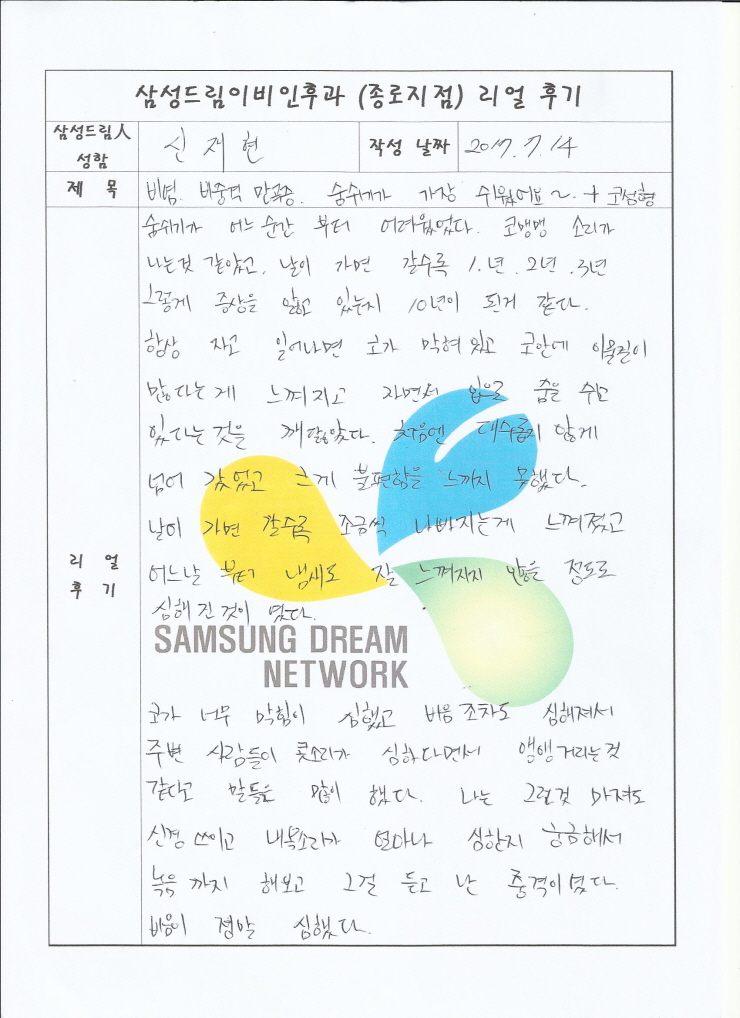 삼성드림이비인후과 (종로지점) 리얼 후기
삼성드림人 성함
신재현
작성 날짜
2017. 7. 14
제 목
비염. 비중격 만곡증. 숨쉬기가 가장 쉬웠어요 ~. + 코성형
리 얼 후 기
숨쉬기가 어느 순간 부터 어려웠었다. 코맹맹 소리가
나는것 같았고. 날이 가면 갈수록 1.년. 2년. 3년
그렇게 증상을 앓고 있는지 10년이 된거 같다.
항상 자고 일어나면 코가 막혀있고 코안에 이물질이
많다는게 느껴지고 자면서 입으로 숨을 쉬고
있다는 것을 깨달았다. 처음엔 대수롭지 않게
넘어 갔었고 크게 불편함을 느끼지 못했다.
날이 가면 갈수록 조금씩 나빠지는게 느껴졌고
어느날 부터 냄새도 잘 느껴지지 않을 정도로
심해 진 것이 였다.
SAMSUNG DREAM
NETWORK
코가 너무 막힘이 심했고 비음 조차도 심해져서
주변 사람들이 콧소리가 심하다면서 앵앵거리는것
같다고 말들을 많이 했다. 나는 그런것 마져도
신경 쓰이고 내목소리가 얼마나 심한지 궁금해서
녹음 까지 해보고 그걸 듣고 난 충격이였다.
비음이 정말 심했다.